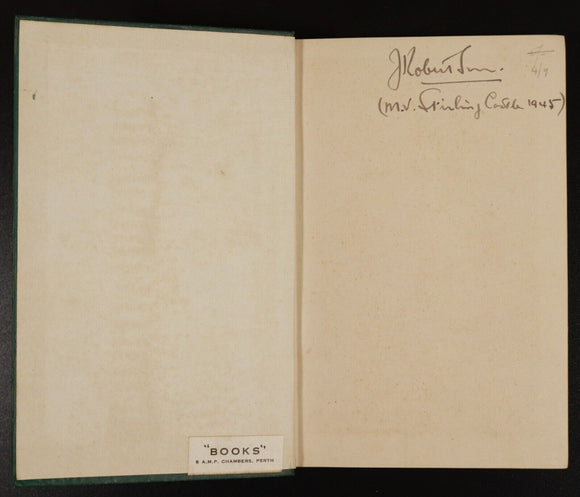 "BOOKS"
5 A.M.P. CHAMBERS, PERTH
J Robertson.
(M.V. Stirling Castle 1945)
4/9